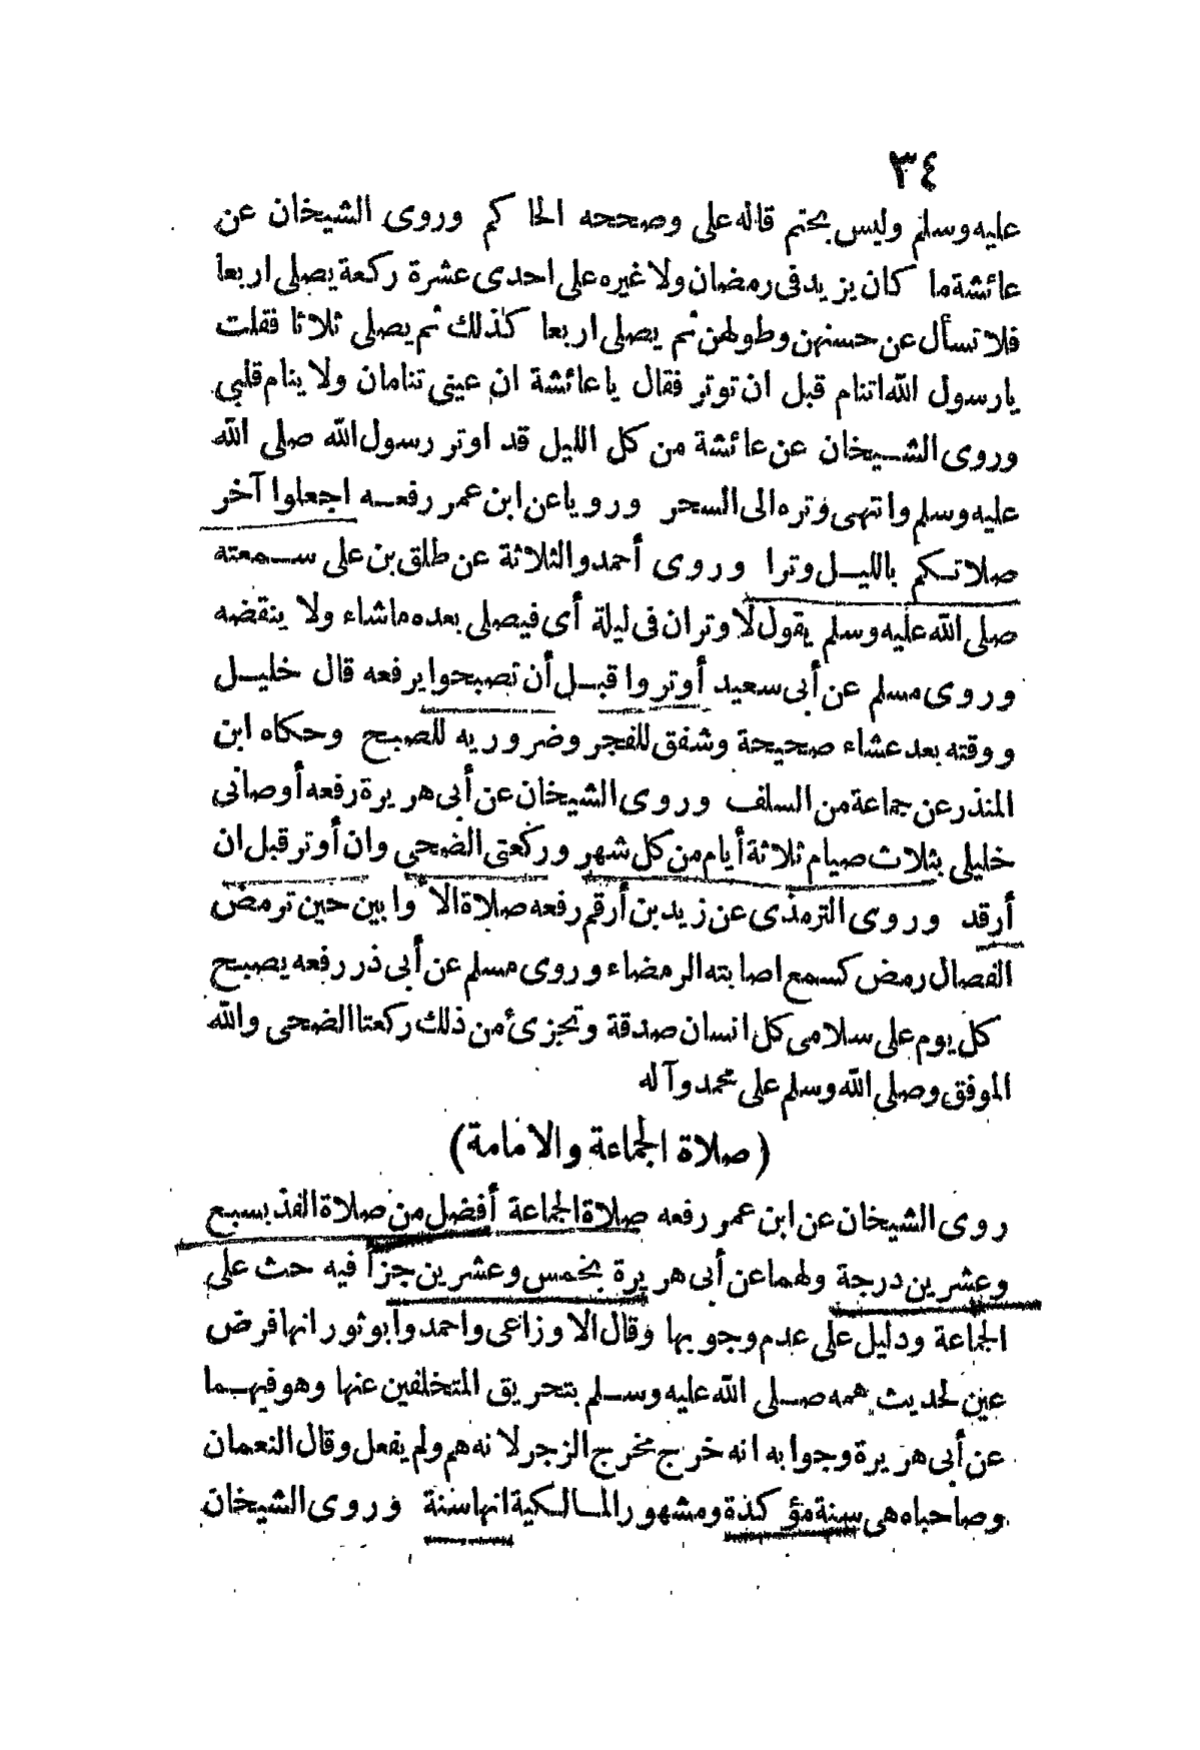 ٣٤
عليه وسلم وليس بحتم قاله على وصححه الحاكم وروى الشيخان عن
عائشة ما كان يزيد فى رمضان ولا غيره على احدى عشرة ركعة يصلى اربعا
فلا تسأل عن حسنهن وطولهن ثم يصلى اربعا كذلك ثم يصلى ثلاثا فقلت
يا رسول الله اتنام قبل ان توتر فقال يا عائشة ان عينى تنامان ولا ينام قلبى
وروى الشيخان عن عائشة من كل الليل قد اوتر رسول الله صلى الله
عليه وسلم وانتهى وتره الى السحر ورويا عن ابن عمر رفعه اجعلوا آخر
صلاتكم بالليل وترا وروى أحمد والثلاثة عن طلق بن على سمعته
صلى الله عليه وسلم يقول لا وتران فى ليلة أى فيصلى بعده ما شاء ولا ينقضه
وروى مسلم عن أبى سعيد أوتروا قبل أن تصبحوا يرفعه قال خليل
ووقته بعد عشاء صحيحة وشفق للفجر وضروريه للصبح وحكاه ابن
المنذر عن جماعة من السلف وروى الشيخان عن أبى هريرة رفعه أوصانى
خليلى بثلاث صيام ثلاثة أيام من كل شهر وركعتى الضحى وان أوتر قبل ان
أرقد وروى الترمذى عن زيد بن أرقم رفعه صلاة الاوابين حين ترمض
الفصال رمض كسمع اصابته الرمضاء وروى مسلم عن أبى ذر رفعه يصبح
كل يوم على سلامى كل انسان صدقة وتجزئ من ذلك ركعتا الضحى والله
الموفق وصلى الله وسلم على محمد وآله
(صلاة الجماعة والامامة)
روى الشيخان عن ابن عمر رفعه صلاة الجماعة أفضل من صلاة الفذ بسبع
وعشرين درجة ولهما عن أبى هريرة بخمس وعشرين جزأ فيه حث على
الجماعة ودليل على عدم وجوبها وقال الاوزاعى واحمد وابو ثور انها فرض
عين لحديث همه صلى الله عليه وسلم بتحريق المتخلفين عنها وهو فيهما
عن أبى هريرة وجوابه انه خرج مخرج الزجر لانه هم ولم يفعل وقال النعمان
وصاحباه هى سنة مؤكدة ومشهور المالكية انها سنة وروى الشيخان